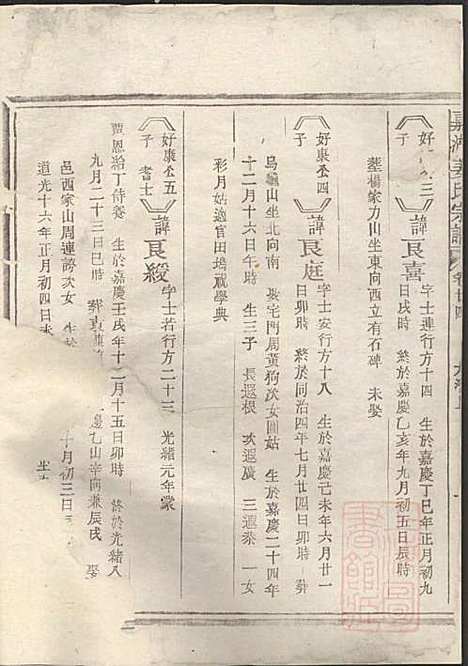 嘉 姜氏宗譜 卷廿四
好 三 子 諱良喜 字士連行方十四 生於嘉慶丁巳年正月初九
日戌時 終於嘉慶乙亥年九月初五日辰時
塟楊家力山坐東向西立有石碑 未娶
好康公四子 諱良庭 字士安行方十八 生於嘉慶己未年六月廿一
日卯時 終於同治四年七月廿四日卯時 葬
烏龜山坐北向南 娶宅門周黃狗次女圓姑 生於嘉慶二十四年
十二月十六日午時 生三子 長遐根 次遐廣 三遐 一女
彩月姑適官田 學典
好康公五子 耆士 諱良綬 字士若行方二十三 光緒元年蒙
賈恩給丁侍養 生於嘉慶壬戌年十二月十五日卯時 終於光緒八
九月二十三日巳時 葬 邊乙山辛向兼辰戌 娶
邑西家山周連 次女 生 十月初三日
道光十六年正月初四日未 坐